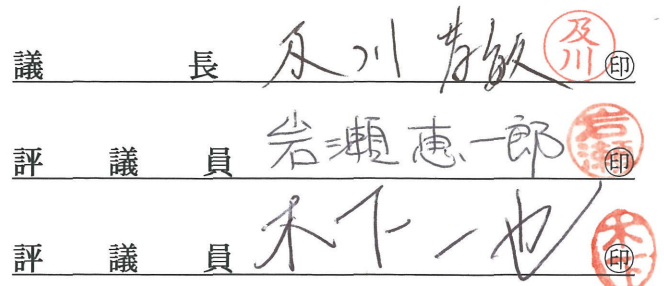 議長 及川 孝敏 及川 ㊞
評議員 岩瀬恵一郎 岩瀬 ㊞
評議員 木下一也 木下 ㊞